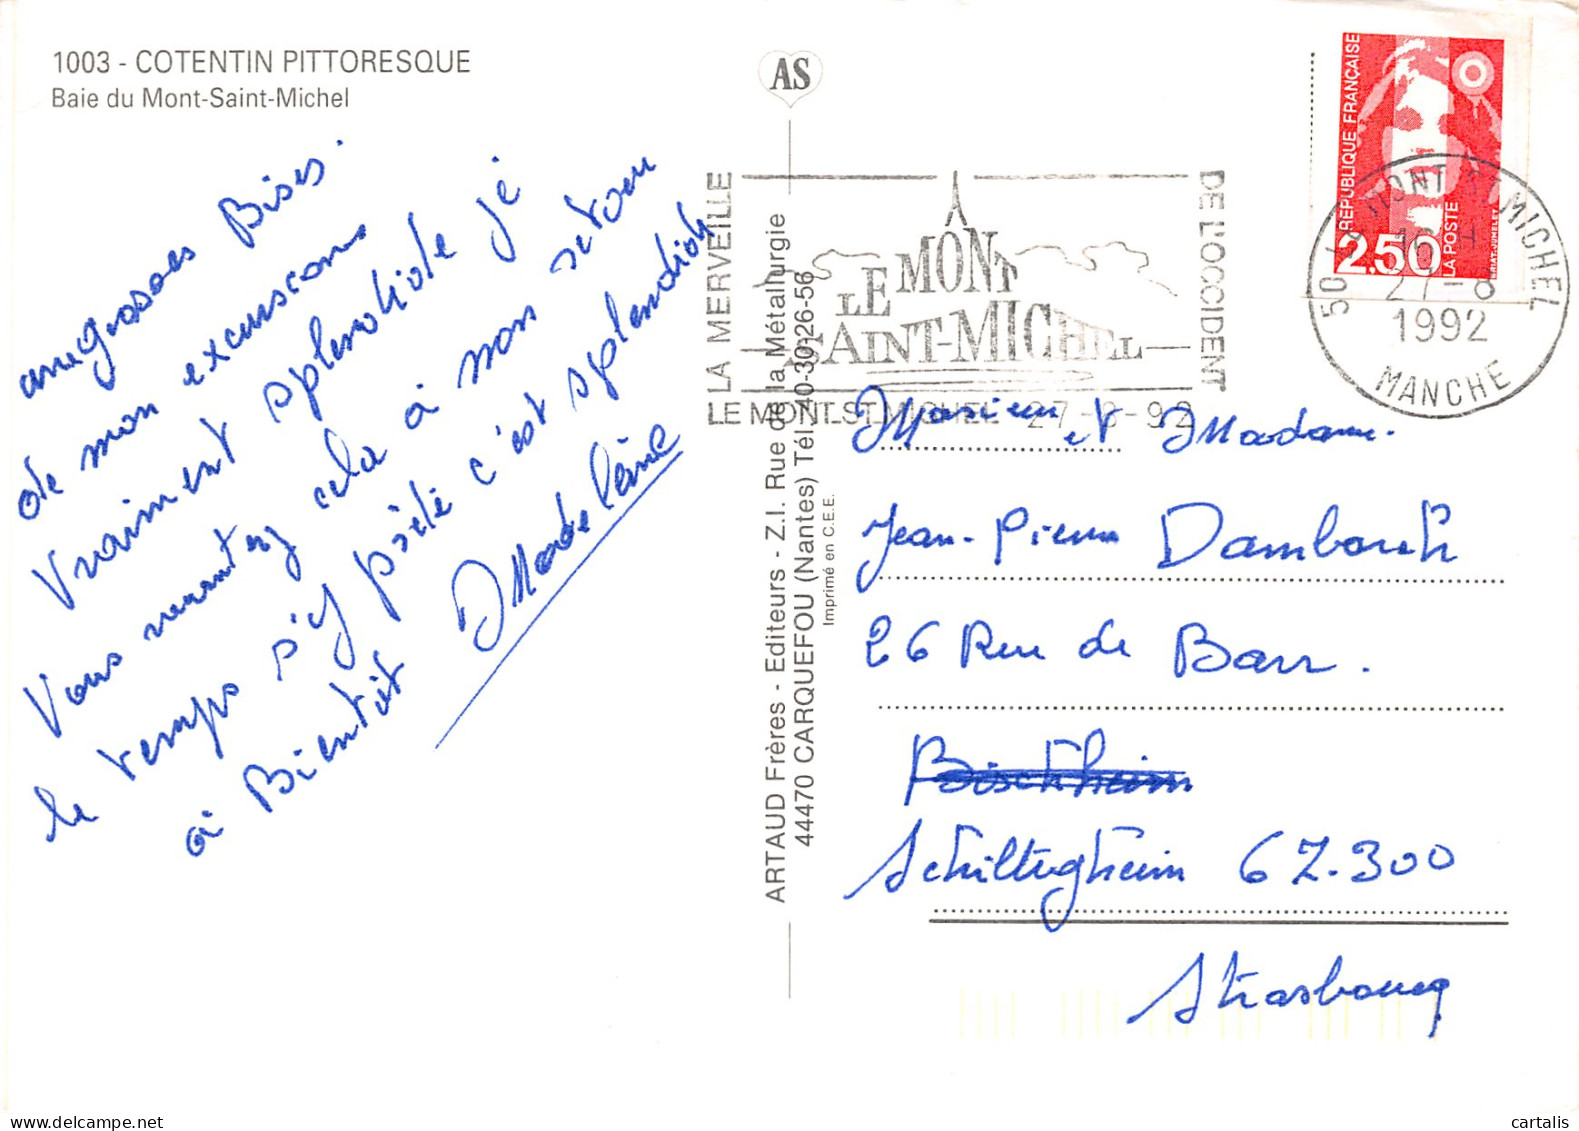 1003 - COTENTIN PITTORESQUE
Baie du Mont-Saint-Michel
grosses Bises.
de mon excursions
Vraiment splendide je
Vous cela à mon retour
le temps s'y prête c'est splendide
à Bientôt Madeleine
AS
ARTAUD Frères - Editeurs - Z.I. Rue de la Métallurgie
44470 CARQUEFOU (Nantes) Tél. 40-30-26-56
Imprimé en C.E.E.
LA MERVEILLE
LE MONT
SAINT-MICHEL
DE L'OCCIDENT
LE MONT-ST-MICHEL 27-8-92
RÉPUBLIQUE FRANÇAISE
2.50
LA POSTE
BRIAT-JUMELET
50 MONT ST MICHEL
16 H
27-8
1992
MANCHE
Monsieur et Madame.
Jean-Pierre
26 Rue de Barr.
Bischheim
Schiltigheim 67.300
Strasbourg
cartalis.com